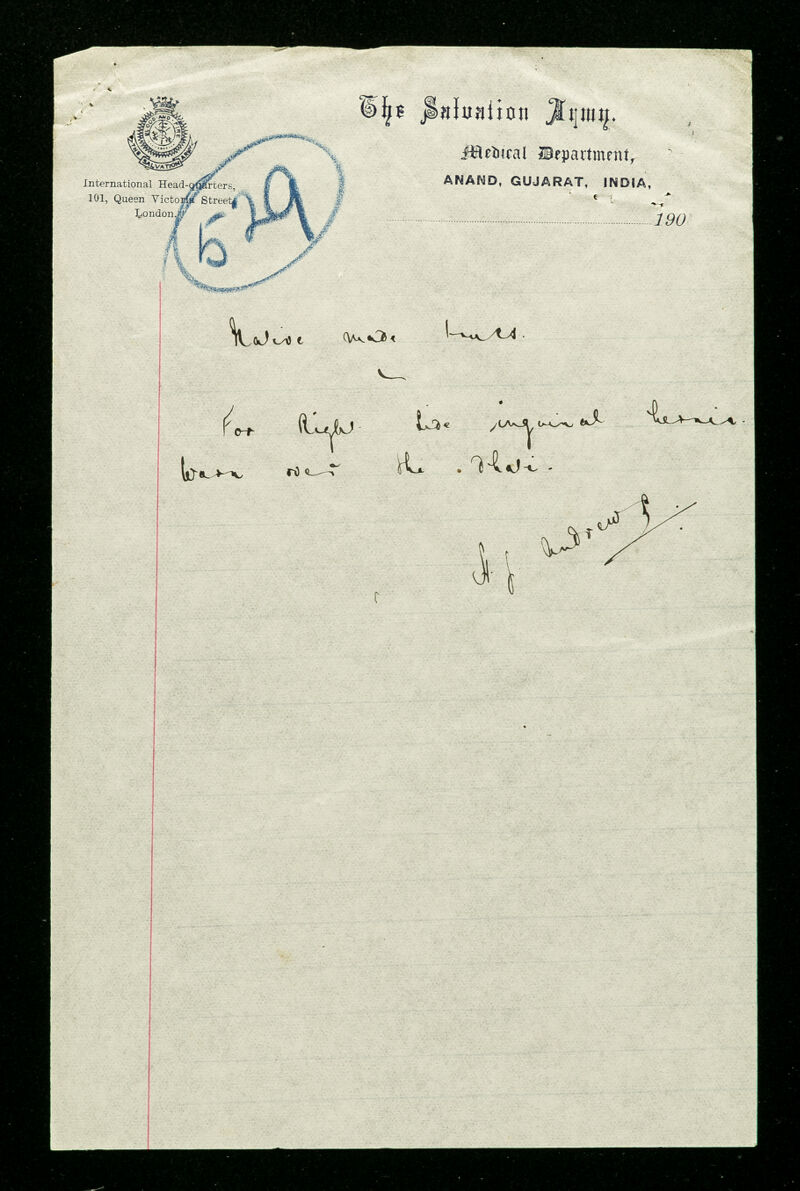 The Salvation Army.
Medical Department,
ANAND, GUJARAT, INDIA,
190
BLOOD AND FIRE
THE SALVATION ARMY
International Head-quarters,
101, Queen Victoria Street,
London.
529
Native made truss.
For Right Side inguinal hernia.
Worn over the Dhoti.
H. J. Andrews.